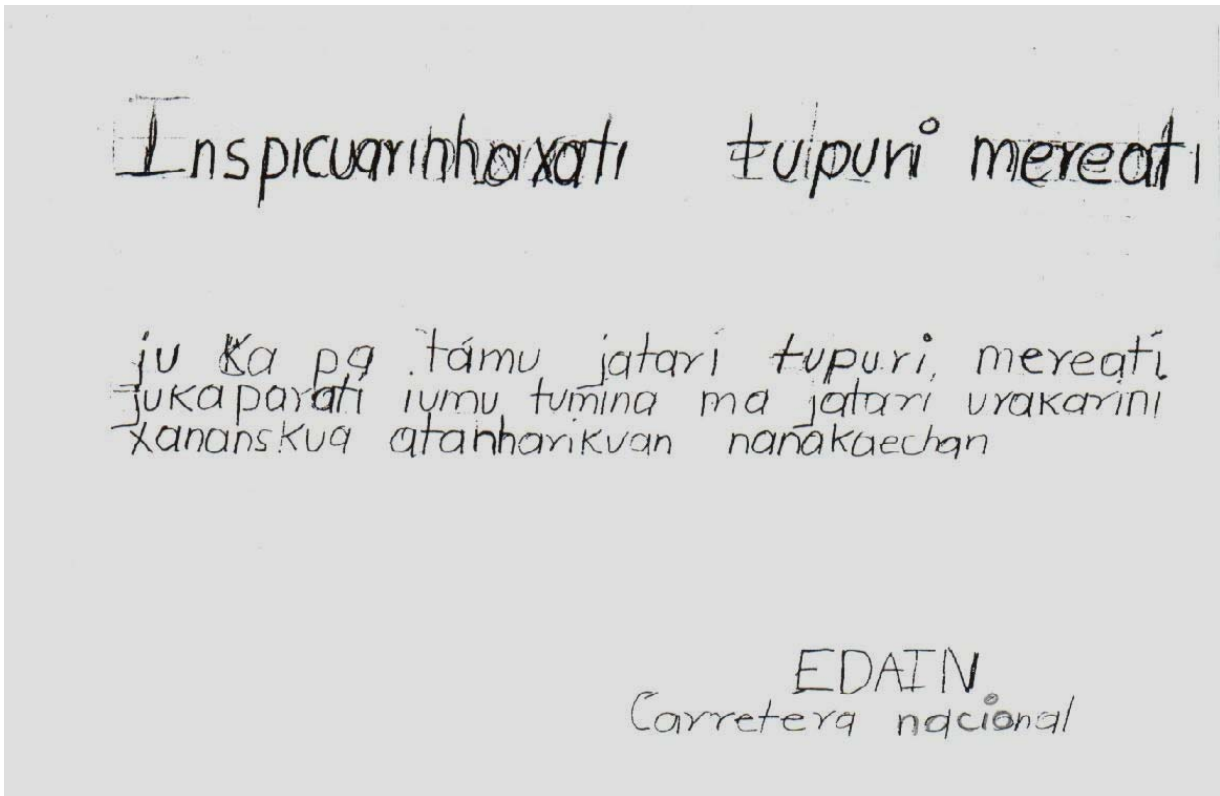 Inspicuarinhaxati tupuri mereati
ju Ka pa támu jatari tupuri, mereati
jukaparati iumu tumina ma jatari urakarini
xanans.kua atanharikuan nanakaechan
EDAIN
Carretera nacional